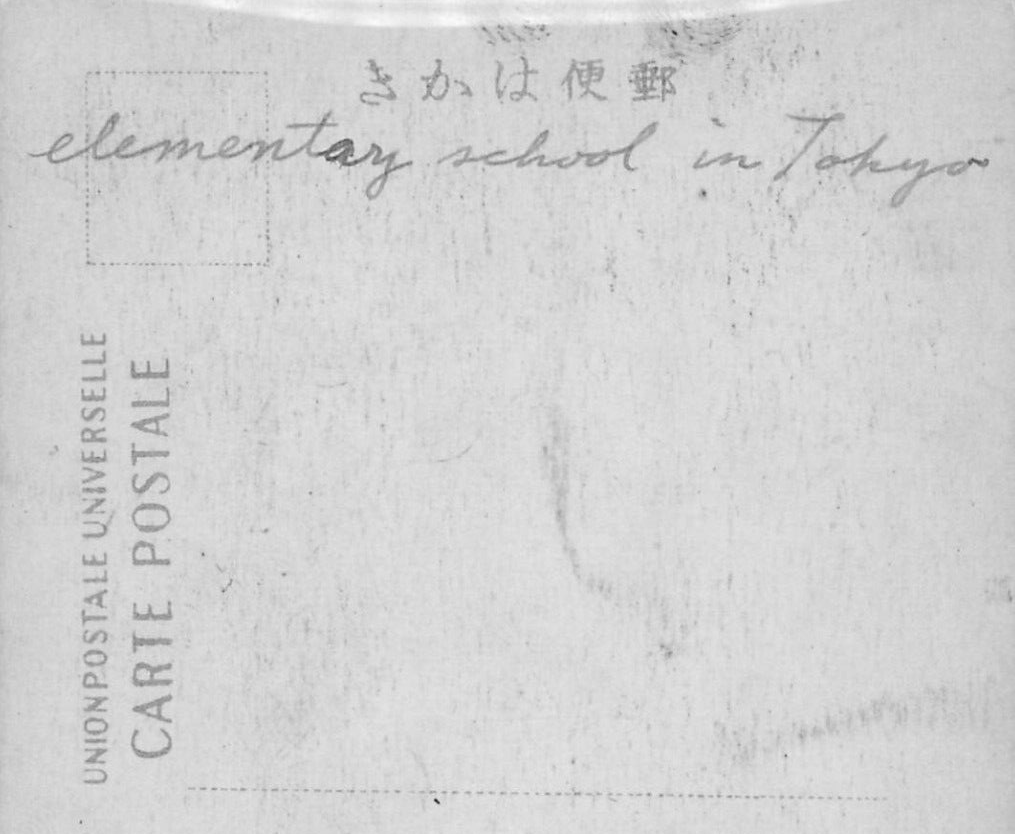 きかは便郵
elementary school in Tokyo
UNION POSTALE UNIVERSELLE
CARTE POSTALE